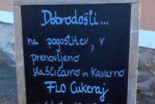 Dobrodošli...
na pogostitev, v
prenovljeno
slaščičarno in kavarno
FLO Cukeraj